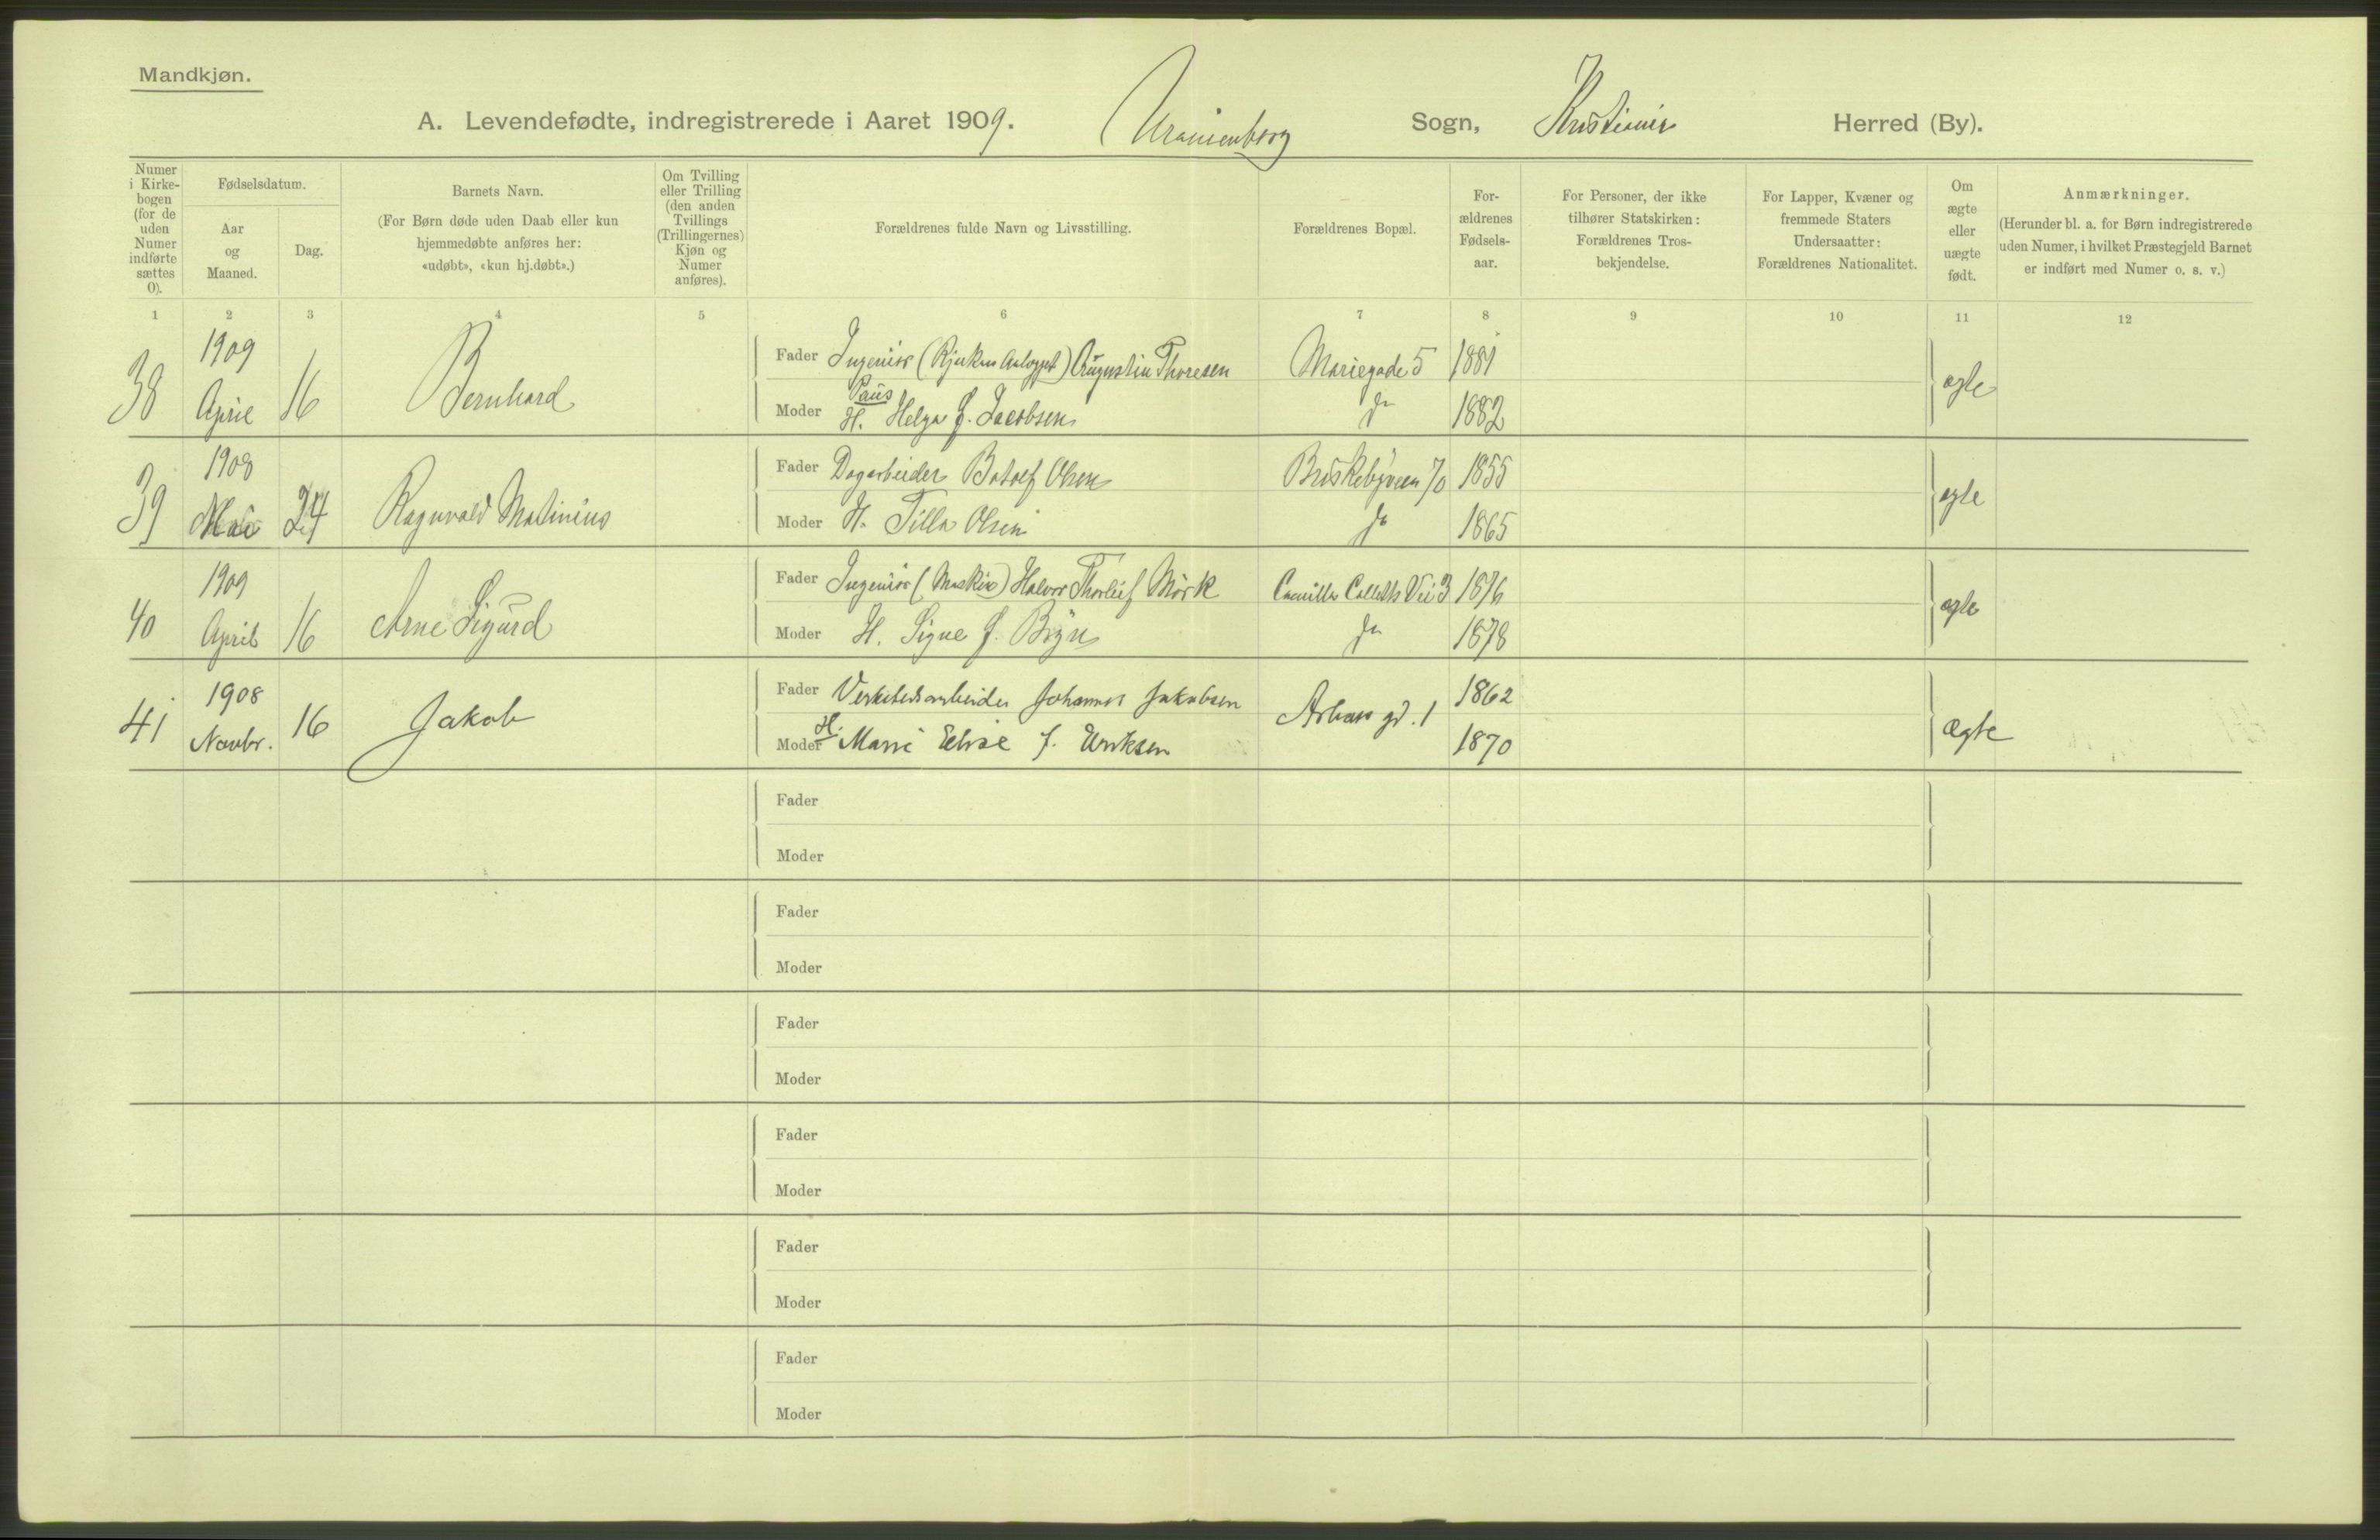 Mandkjøn.
A. Levendefødte, indregistrerede i Aaret 1909. Uranienborg Sogn, Kristiania Herred (By).
Numer i Kirkebogen (for de uden Numer indførte sættes 0).
Fødselsdatum.
Aar og Maaned.
Dag.
Barnets Navn.
(For Børn døde uden Daab eller kun
hjemmedøbte anføres her:
«udøbt», «kun hj.døbt».)
Om Tvilling
eller Trilling
(den anden
Tvillings
(Trillingernes)
Kjøn og
Numer
anføres).
Forældrenes fulde Navn og Livsstilling.
Forældrenes Bopæl.
For-
ældrenes
Fødsels-
aar.
For Personer, der ikke
tilhører Statskirken:
Forældrenes Tros-
bekjendelse.
For Lapper, Kvæner og
fremmede Staters
Undersaatter:
Forældrenes Nationalitet.
Om
ægte
eller
uægte
født.
Anmærkninger.
(Herunder bl. a. for Børn indregistrerede
uden Numer, i hvilket Præstegjeld Barnet
er indført med Numer o. s. v.)
1 2 3 4 5 6 7 8 9 10 11 12
38 1909 April 16 Bernhard
Fader Ingeniør (Rjukan Anlegget) Augustin Thoresen Mariegade 5 1881
Paus
Moder H. Helga f. Jacobsen do 1882
ægte
39 1908 Mai 24 Ragnvald Matinius
Fader Dagarbeider Botolf Olsen Briskebyveien 70 1855
Moder H. Tilla Olsen do 1865
ægte
40 1909 April 16 Arne Sigurd
Fader Ingeniør (Maskin) Halvor Thorleif Mörk Camilla Colletts Vei 3 1876
Moder H. Signe f. Bryn do 1878
ægte
41 1908 Novbr. 16 Jakob
Fader Verkstedsarbeider Johannes Jakobsen 1862
Moder H. Marie Elise f. Eriksen gd. 1 1870
ægte
Fader
Moder
Fader
Moder
Fader
Moder
Fader
Moder
Fader
Moder
Fader
Moder